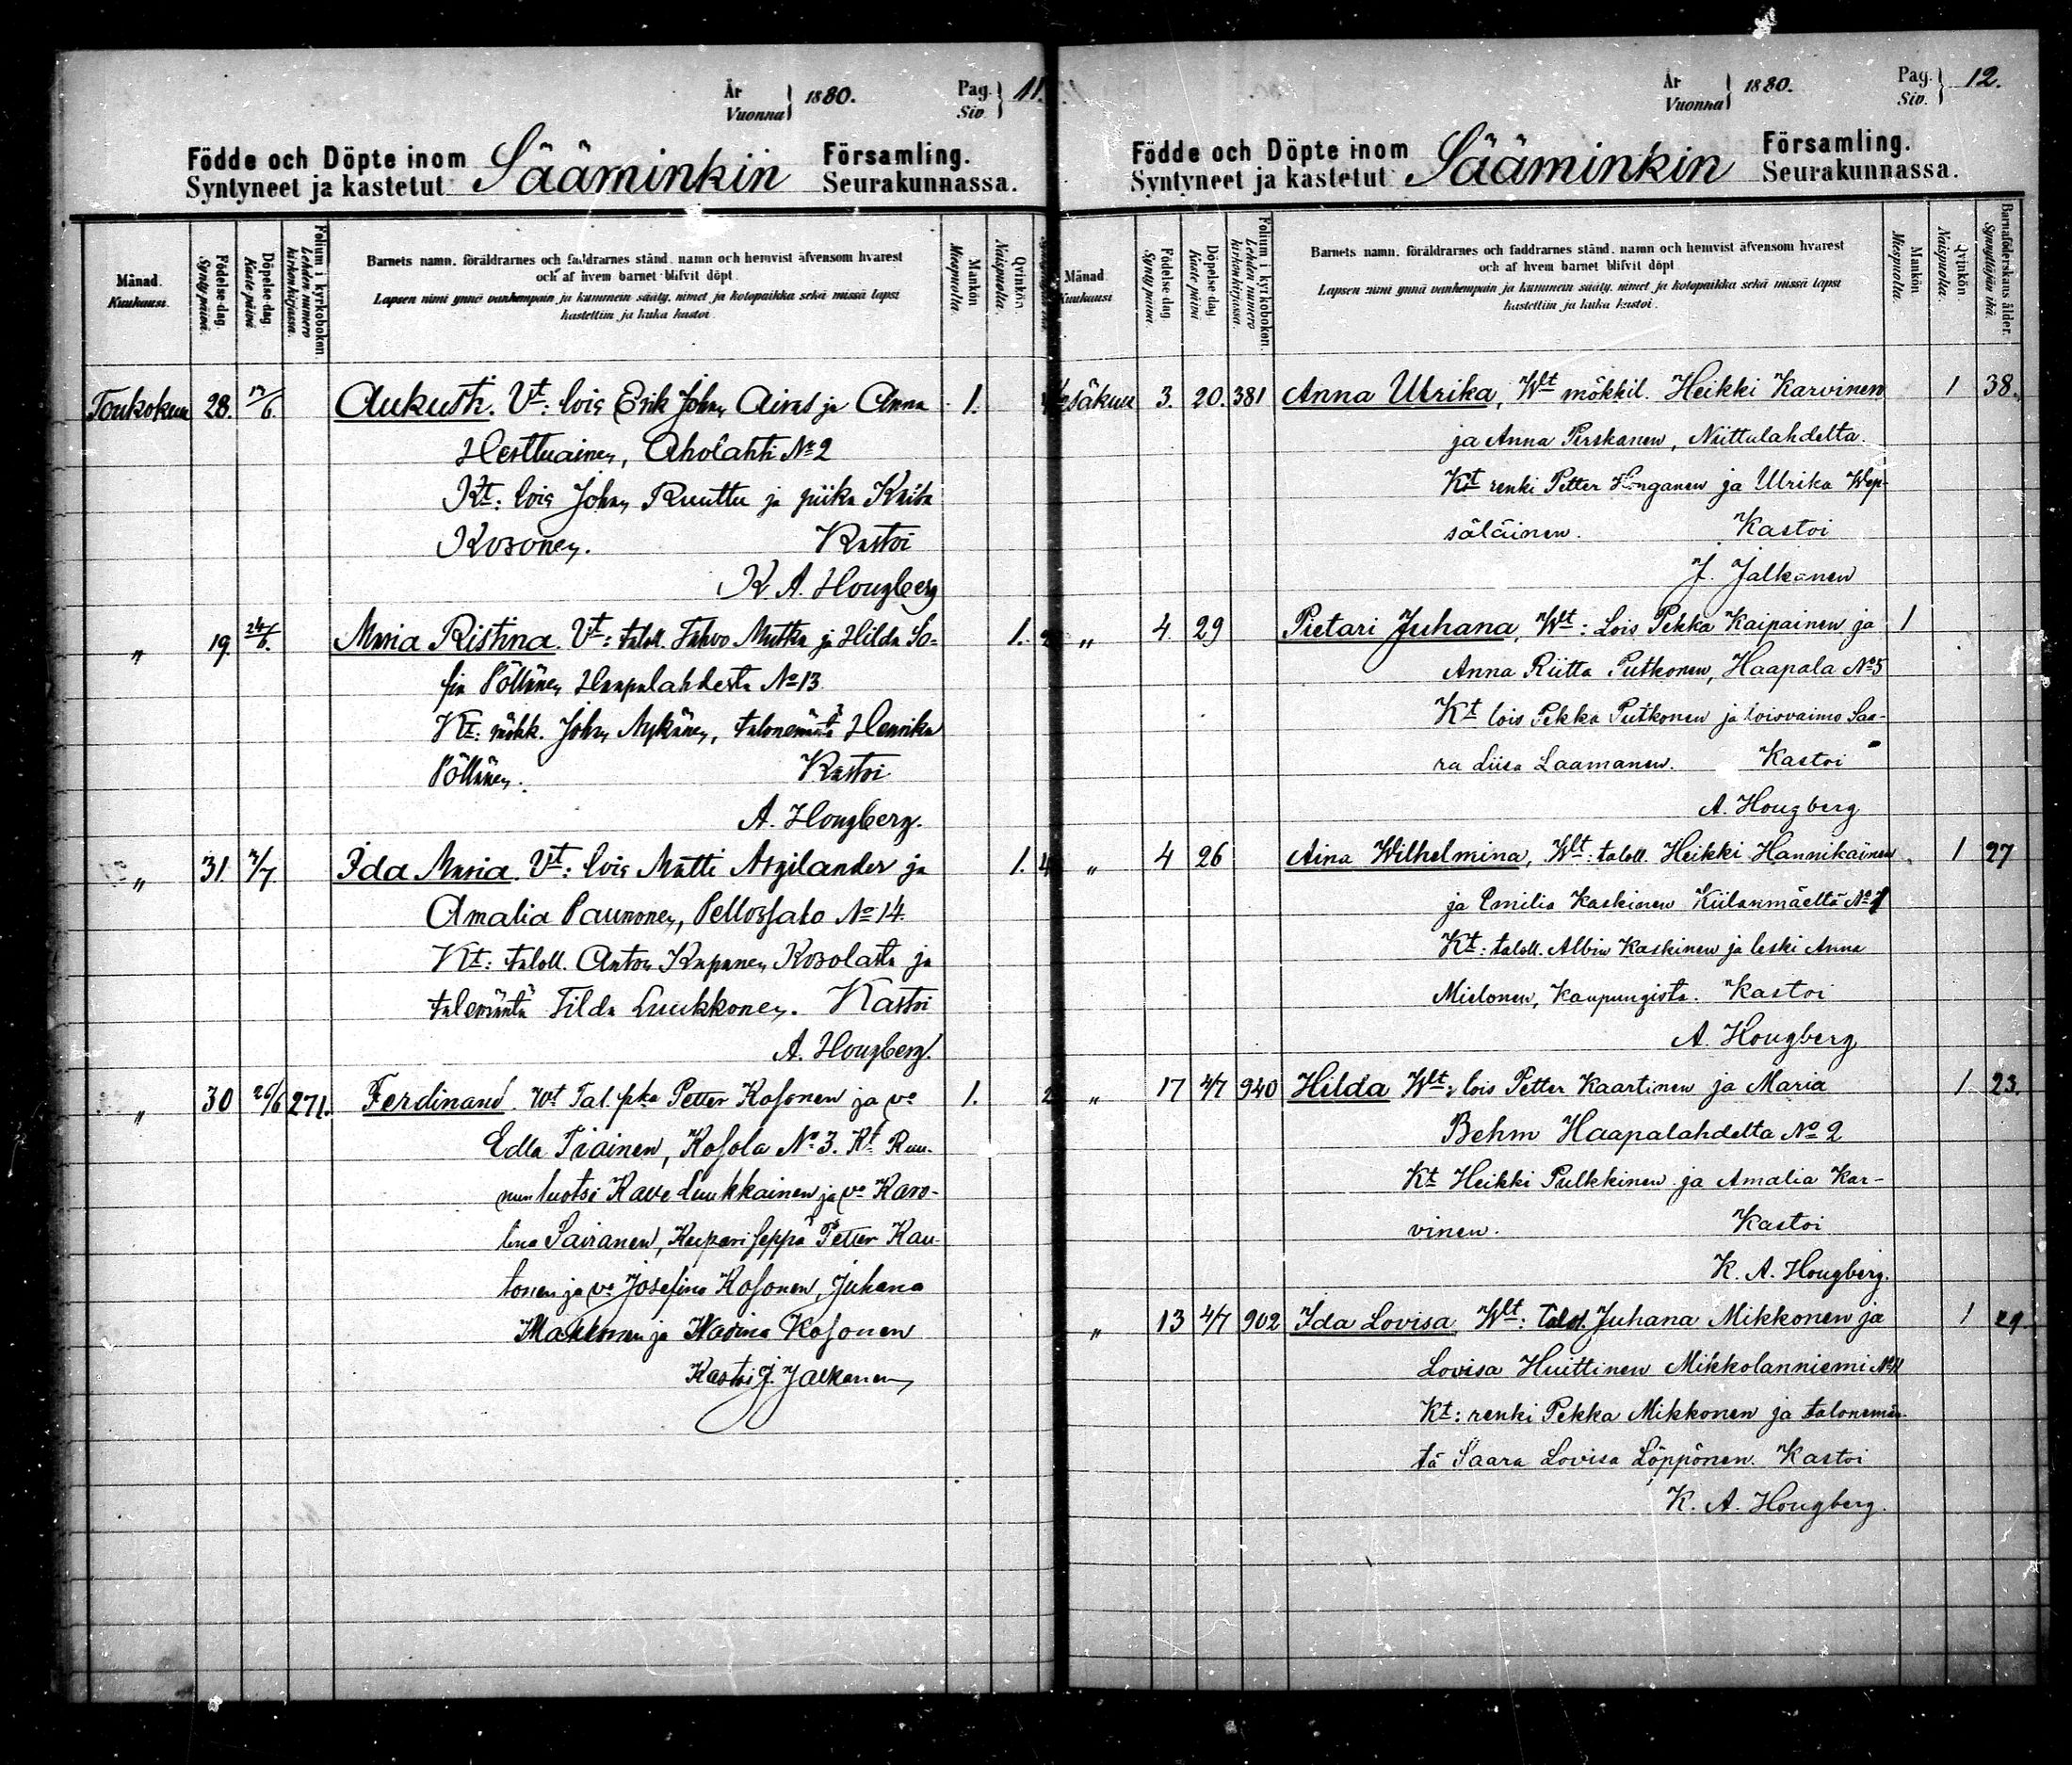 År Vuonna } 1880. Pag. Siv. } 11.
Födde och Döpte inom Syntyneet ja kastetut Sääminkin Församling. Seurakunnassa.
Månad. Kuukausi.
Födelse-dag. Synty päivä.
Döpelse-dag. Kaste päivä
Folium i kyrkoboken Lehden numero kirkonkirjassa.
Barnets namn, föräldrarnes och faddrarnes stånd, namn och hemvist äfvensom hvarest
och af hvem barnet blifvit döpt.
Lapsen nimi ynnä vanhempain ja kummein sääty, nimet ja kotopaikka sekä missä lapsi
kastettiin ja kuka kastoi.
Mankön Miespuolia.
Qvinkön. Naispuolia.
Toukokuu 28. 12/6. Aukusti. Vt: lois Erik Johan Airas ja Anna 1.
Herttuainen, Aholahti No 2
Kt: lois Johan Ruuttu ja piika Kaisa
Kosonen. Kastoi
K. A. Hougberg
„ 19. 24/6. Maria Ristina. Vt: taloll. Tahvo Mutka ja Hilda So- 1.
fia Pöllänen Haapalahdesta No 13
Kt: mökk. Johan Nykänen, talonemäntä Henrika
Pöllänen. Kastoi
A. Hougberg.
„ 31. 3/7. Ida Maria. Vt: lois Matti Argilander ja 1.
Amalia Paunonen, Pellossalo No 14.
Kt: taloll. Anton Kupanen Kosolasta ja
talemäntä Tilda Luukkonen. Kastoi
A. Hougberg.
„ 30 26/6 271. Ferdinand. Wt Tal. pka Petter Kosonen ja vo 1.
Edla Tiainen, Kosola No 3. Kt Ruu-
nun luotsi Kave Luukkainen ja vo Karo-
lina Sairanen, Kupari seppä Petter Kau-
tonen ja vo Josefina Kosonen, Juhana
Makkonen ja Kosonen
Kastoi J. Jalkanen
År Vuonna } 1880. Pag. Siv. } 12.
Födde och Döpte inom Syntyneet ja kastetut Sääminkin Församling. Seurakunnassa.
Månad. Kuukausi
Födelse-dag. Synty päivä.
Döpelse-dag. Kaste päivä
Folium i kyrkoboken. Lehden numero kirkonkirjassa.
Barnets namn, föräldrarnes och faddrarnes stånd, namn och hemvist äfvensom hvarest
och af hvem barnet blifvit döpt.
Lapsen nimi ynnä vanhempain ja kummein sääty, nimet ja kotopaikka sekä missä lapsi
kastettiin ja kuka kastoi.
Mankön Miespuolia.
Qvinkön. Naispuolia.
Barnaföderskans ålder. Synnyttäjän ikä.
Kesäkuu 3. 20. 381 Anna Ulrika, Wlt mökkil. Heikki Karvinen 1 38.
ja Anna Perskanen, Niittulahdelta.
Kt renki Petter Honganen ja Ulrika Wep-
säläinen. Kastoi
J. Jalkanen
„ 4 29 Pietari Juhana, Wlt: Lois Pekka Kaipainen ja 1
Anna Riitta Putkonen, Haapala No 5
Kt lois Pekka Putkonen ja loisvaimo Saa-
ra Liisa Laamanen. Kastoi
A. Hougberg
„ 4 26 Aina Wilhelmina, Wlt: taloll. Heikki Hannikainen 1 27
ja Emilia Kaskinen Kiilanmäeltä No 1
Kt: taloll. Albin Kaskinen ja leski Anna
Mielonen, Kaupungista. Kastoi
A. Hougberg
„ 17 4/7 940 Hilda Wlt: lois Petter Kaartinen ja Maria 1 23.
Behm Haapalahdelta No 2
Kt Heikki Pulkkinen ja Amalia Kar-
vinen. Kastoi
K. A. Hougberg.
„ 13 4/7 902 Ida Lovisa Wlt: talol. Juhana Mikkonen ja 1 29
Lovisa Huittinen Mikkolanniemi No 11
Kt: renki Pekka Mikkonen ja talonemän-
tä Saara Lovisa Löppönen. Kastoi
K. A. Hougberg.